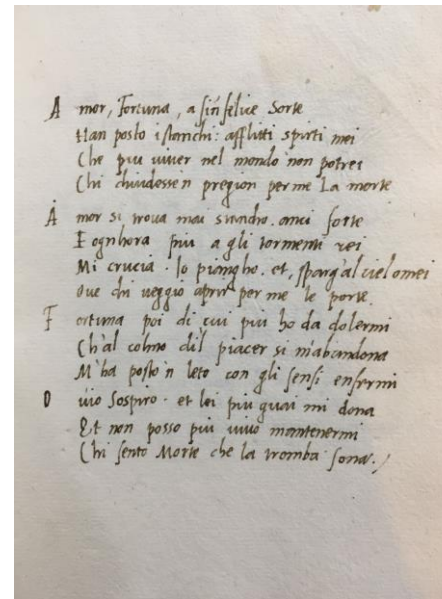 A mor, Fortuna, a sinfelice Sorte
Han posto i stanchi afflitti spirti mei
Che piu viver nel mondo non potrei
Chi chiudesse'n pregion per me La morte
A mor si trova mai stancho. anci forte
E ognhora piu a gli tormenti rei
Mi crucia. Io piangho. et, sparg'al ciel omei
Ove chi veggio aprir per me le porte.
F ortuna poi di cui piu ho da dolermi
Ch'al colmo dil piacer si m'abandona
M'ha posto'n leto con gli sensi enfermi
O vio Sospiro. et lei piu guai mi dona
Et non posso piu vivo mantenermi
Chi sento Morte che la tromba sona.